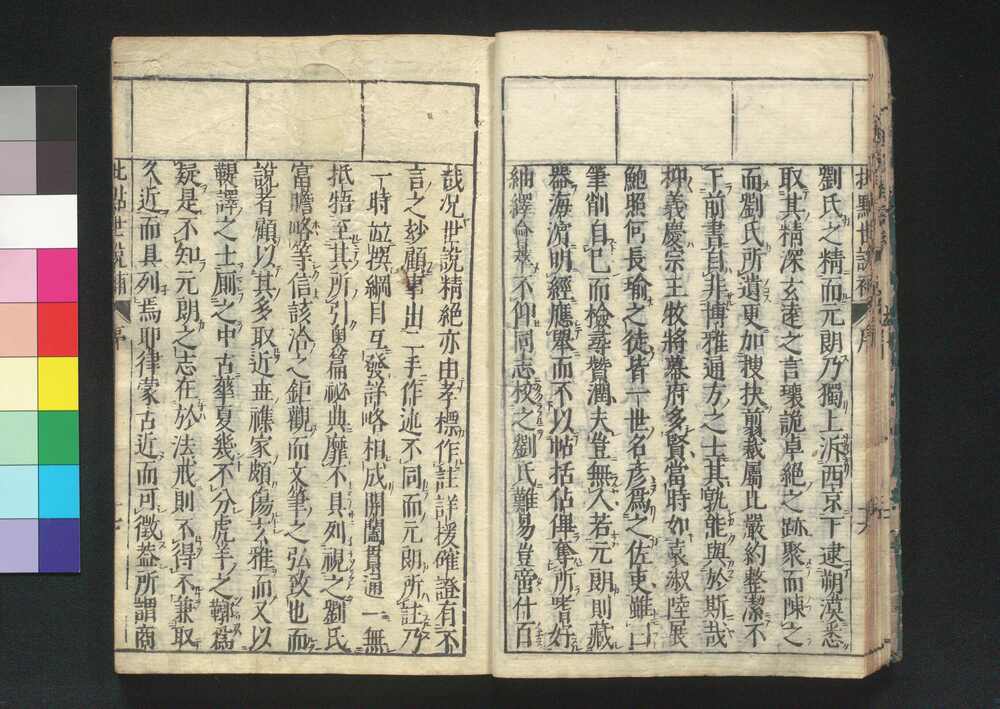 劉氏之精而元朗乃獨上泝西京下逮朔漠悉
取其精深玄遠之言瓌詭卓絶之跡聚而陳之
而劉氏所遺更加搜抉剪裁屬比嚴約整潔不
下前書自非博雅通方之士其孰能與於斯哉
抑義慶宗王牧將幕府多賢當時如袁淑陸展
鮑照何長瑜之徒皆一世名彥爲之佐吏雖曰
筆削自己而檢尋贊潤夫豈無人若元朗則藏
器海濵明經應舉而不以帖括佔俾奪所嗜好
紬繹不仰同志校之劉氏難易豈啻什百
哉况世說精絶亦由孝標作註詳援確證有不
言之玅顧事出二手作述不同而元朗所註乃
一時並撰綱目互發詳略相成開闔貫通一無
抵牾至其所引輿篇祕典靡不具列視之劉氏
富贍略等信該洽之鉅觀而文筆之弘致也而
說者顧以其多取近丗襍家頗傷大雅而又以
鞮譯之士厠之中古華夏幾不分虎羊之鞹爲
疑是不知元朗之志在於法戒則不得不兼取
久近而具列焉耶律蒙古近而可徵葢所謂商
批點世說補 序